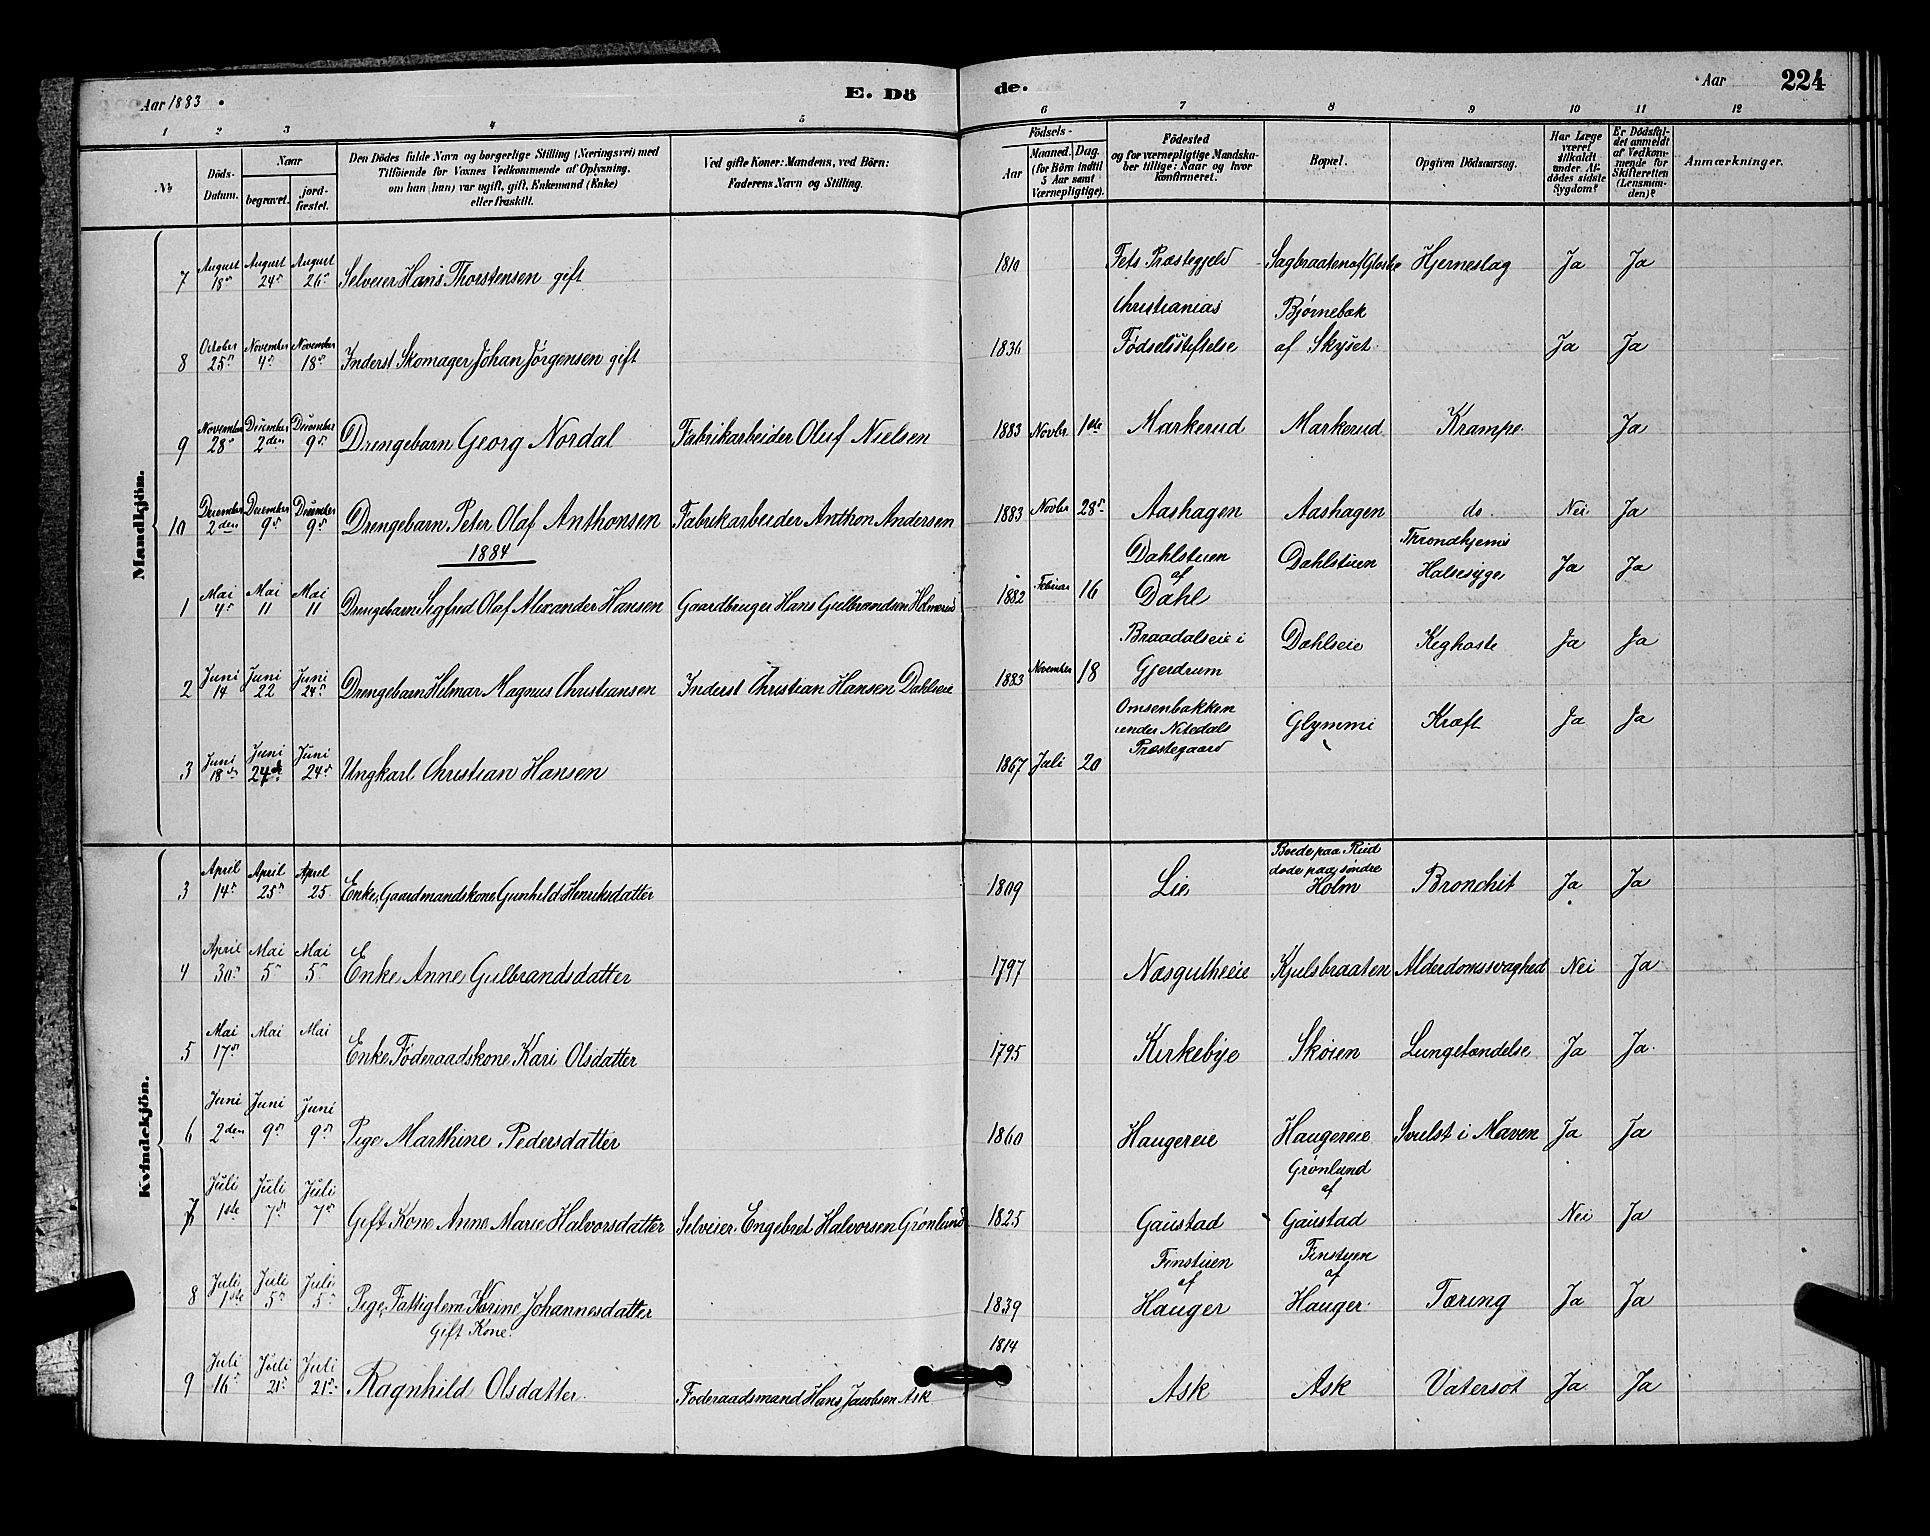 Aar 1883
E. Dö
de.
Aar
224
1 2 3 4 5 6 7 8 9 10 11 12
No
Döds-
Datum.
Naar
begravet.
jord-
fæstet.
Den Dödes fulde Navn og borgerlige Stilling (Næringsvei) med
Tilföiende for Voxnes Vedkommende af Oplysning,
om han (hun) var ugift, gift, Enkemand (Enke)
eller fraskilt.
Ved gifte Koner: Mandens, ved Börn:
Faderens Navn og Stilling.
Födsels-
Aar
Maaned. Dag.
(for Börn indtil
5 Aar samt
Værnepligtige).
Födested
og for værnepligtige Mandska-
ber tillige: Naar og hvor
konfirmeret.
Bopæl.
Opgiven Dödsaarsag.
Har Læge
været
tilkaldt
under Af-
dödes sidste
Sygdom?
Er Dödsfal-
det anmeldt
af Vedkom-
mende for
Skifteretten
(Lensman-
den)?
Anmærkninger.
Mandkjön.
7 August 18de August 24de August 26de Selveier Hans Thorstensen gift 1810 Fets Præstegjeld Sagbraaten af Hjerneslag Ja Ja
8 October 25de November 4de November 18de Inderst Skomager Johan Jörgensen gift 1836 Christianias Fødselsstiftelse Bjørnebæk af Skyset Ja Ja
9 November 28de December 2den December 9de Drengebarn Georg Nordal Fabrikarbeider Oluf Nielsen 1883 Novbr 1ste Markerud Markerud Krampe Ja
10 December 2den December 9de December 9de Drengebarn Peter Olaf Anthonsen Fabrikarbeider Anthon Andersen 1883 Novbr 28de Aashagen Aashagen do. Nei Ja
1884
1 Mai 4de Mai 11 Mai 11 Drengebarn Sigfred Olaf Alexander Hansen Gaardbruger Hans Gulbrandsen Holmerud 1882 Februar 16 Dahlstuen af Dahl Dahlstuen Throndhjems Halsesyge Ja Ja
2 Juni 14 Juni 22 Juni 24de Drengebarn Helmar Magnus Christiansen Inderst Christian Hansen Dahlseie 1883 November 18 Braadalseie i Gjerdrum Dahlseie Kighoste Ja Ja
3 Juni 18de Juni 24de Juni 24de Ungkarl Christian Hansen 1867 Juli 20 Omsenbakken under Nitedals Præstegaard Glymmi Kræft Ja Ja
Kvindekjön.
3 April 14de April 25de April 25 Enke, Gaardmandskone Gunhild Henriksdatter 1809 Lie Boede paa Rud døde paa søndre Holm Bronchit Ja Ja
4 April 30de Mai 5de Mai 5de Enke Anne Gulbrandsdatter 1797 Næsgutheeie Kjulsbraaten Alderdomssvaghed Nei Ja
5 Mai 17de Mai Mai Enke Føderaadskone Kari Olsdatter 1795 Kirkebye Skøien Lungetændelse Ja Ja
6 Juni 2den Juni 9de Juni 9de Pige Marthine Pedersdatter 1860 Haugereie Haugereie Svulst i Maven Ja Ja
7 Juli 1ste Juli 7de Juli 7de Gift Kone Anne Marie Halvorsdatter Selveier Engebret Halvorsen Grønlund 1825 Gaustad Grønlund af Gaustad Nei Ja
8 Juli 1ste Juli 5de Juli 5de Pige, Fattiglem Karine Johannesdatter 1839 Finstuen af Hauger Finstuen af Hauger Tæring Ja Ja
9 Juli 16de Juli 21de Juli 21de Gift Kone. Ragnhild Olsdatter Føderaadsmand Hans Jacobsen Ask 1814 Ask Ask Vatersot Ja Ja